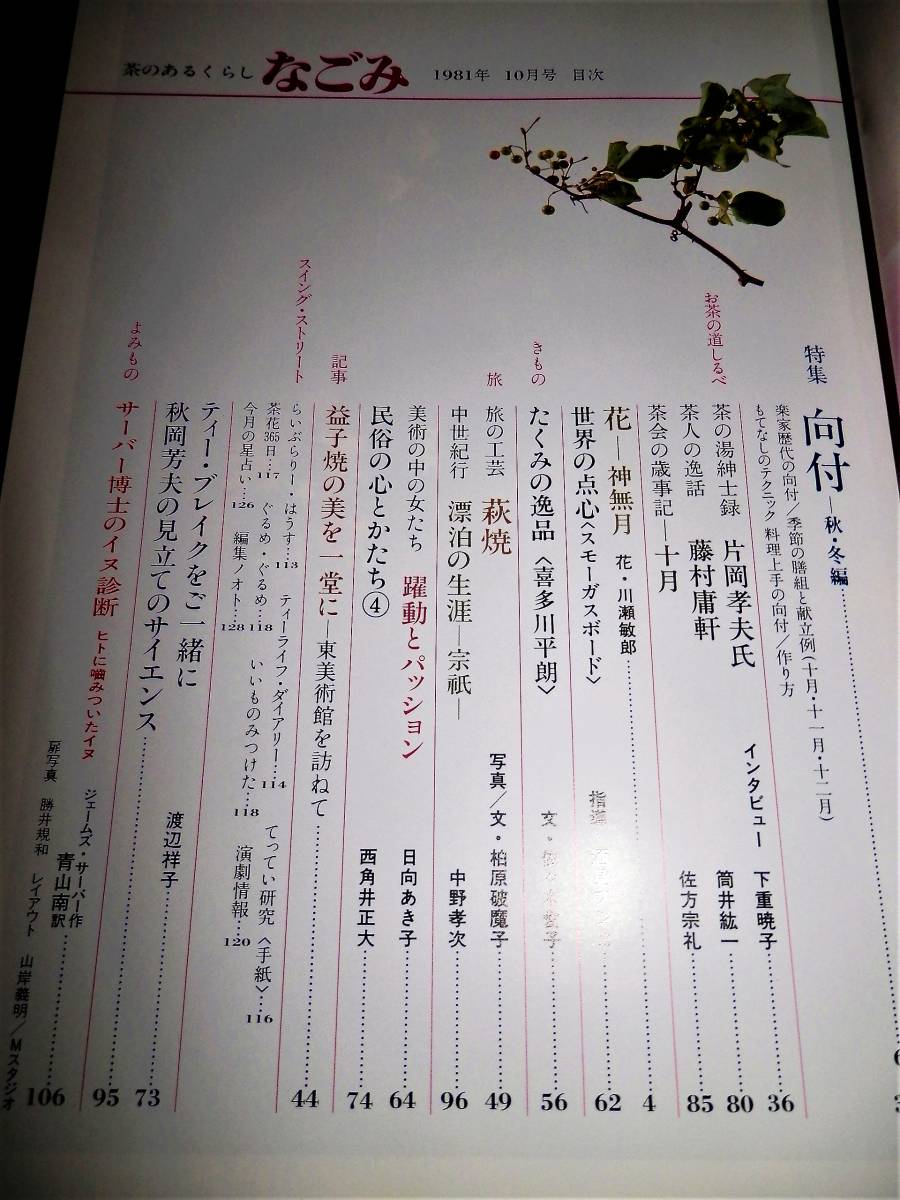 茶のあるくらし なごみ 1981年 10月号 目次
特集 向付―秋・冬編
楽家歴代の向付/季節の膳組と献立例(十月・十一月・十二月)
もてなしのテクニック 料理上手の向付/作り方
お茶の道しるべ
茶の湯紳士録 片岡孝夫氏 インタビュー 下重暁子 36
茶人の逸話 藤村庸軒 筒井紘一 80
茶会の歳事記―十月 佐方宗礼 85
花―神無月 花・川瀬敏郎 4
世界の点心〈スモーガスボード〉 指導 62
きもの
たくみの逸品〈喜多川平朗〉 文・ 56
旅
旅の工芸 萩焼 写真/文・柏原破魔子 49
中世紀行 漂泊の生涯―宗祇― 中野孝次 96
美術の中の女たち 躍動とパッション 日向あき子 64
民俗の心とかたち④ 西角井正大 74
記事
益子焼の美を一堂に―東美術館を訪ねて 44
スイング・ストリート
らいぶらりー・はうす…113 ティーライフ・ダイアリー…114 てってい研究〈手紙〉…116
茶花365日…117 ぐるめ・ぐるめ…118 いいものみつけた…118 演劇情報…120
今月の星占い…126 編集ノオト…128
ティー・ブレイクをご一緒に 渡辺祥子 73
秋岡芳夫の見立てのサイエンス 95
よみもの
サーバー博士のイヌ診断 ヒトに噛みついたイヌ ジェームズ・サーバー作 青山南訳 106
扉写真 勝井規和 レイアウト 山岸義明/Mスタジオ